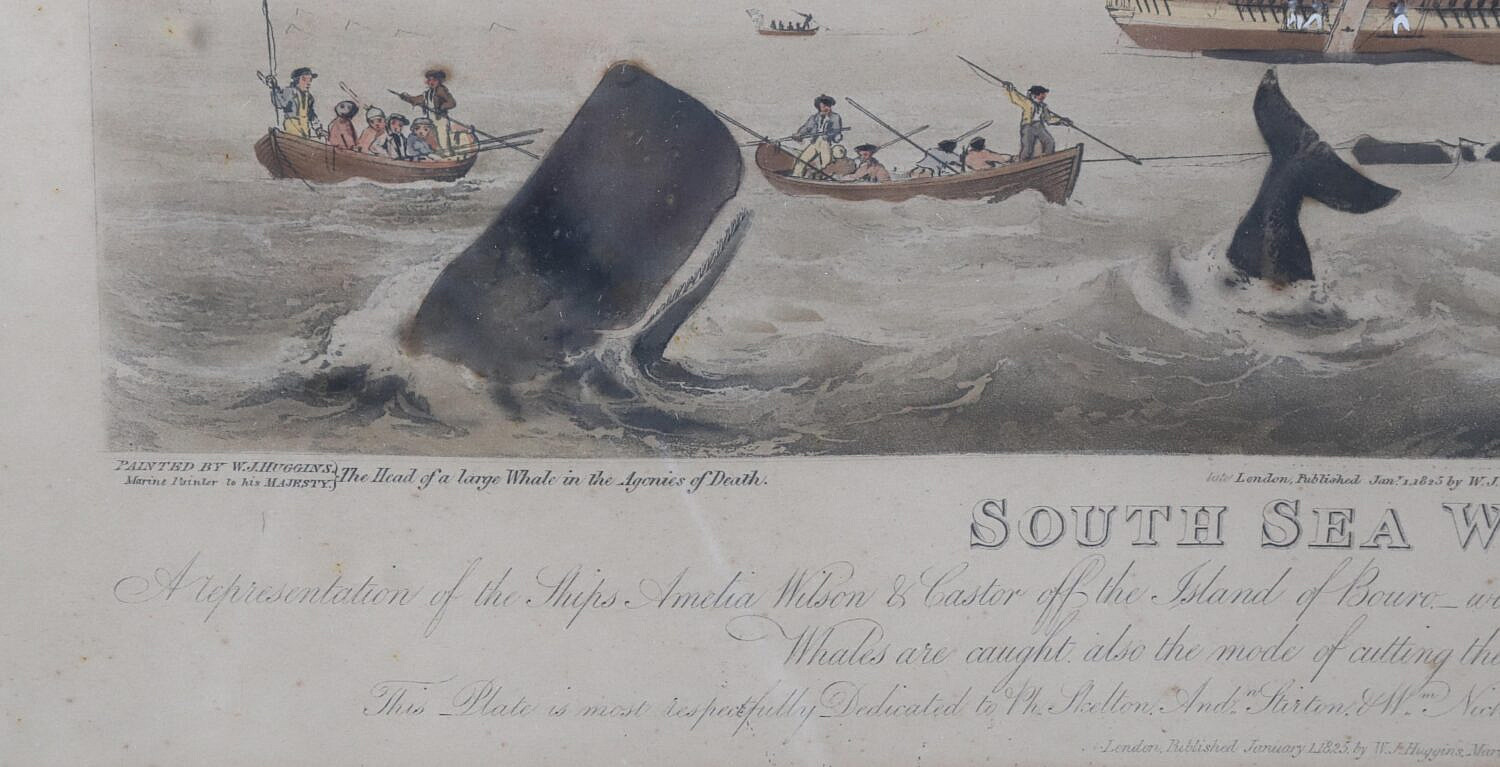 PAINTED BY W.J.HUGGINS.
Marine Painter to his MAJESTY.
The Head of a large Whale in the Agonies of Death.
London, Published Jan.y 1, 1825 by W.J.
SOUTH SEA W
A representation of the Ships Amelia Wilson & Castor off the Island of Bouro_
Whales are caught. also the mode of cutting the
This Plate is most respectfully Dedicated to Ch. Skelton, And.w Stirton, & W.m
London, Published January 1, 1825, by W.J. Huggins, Mar